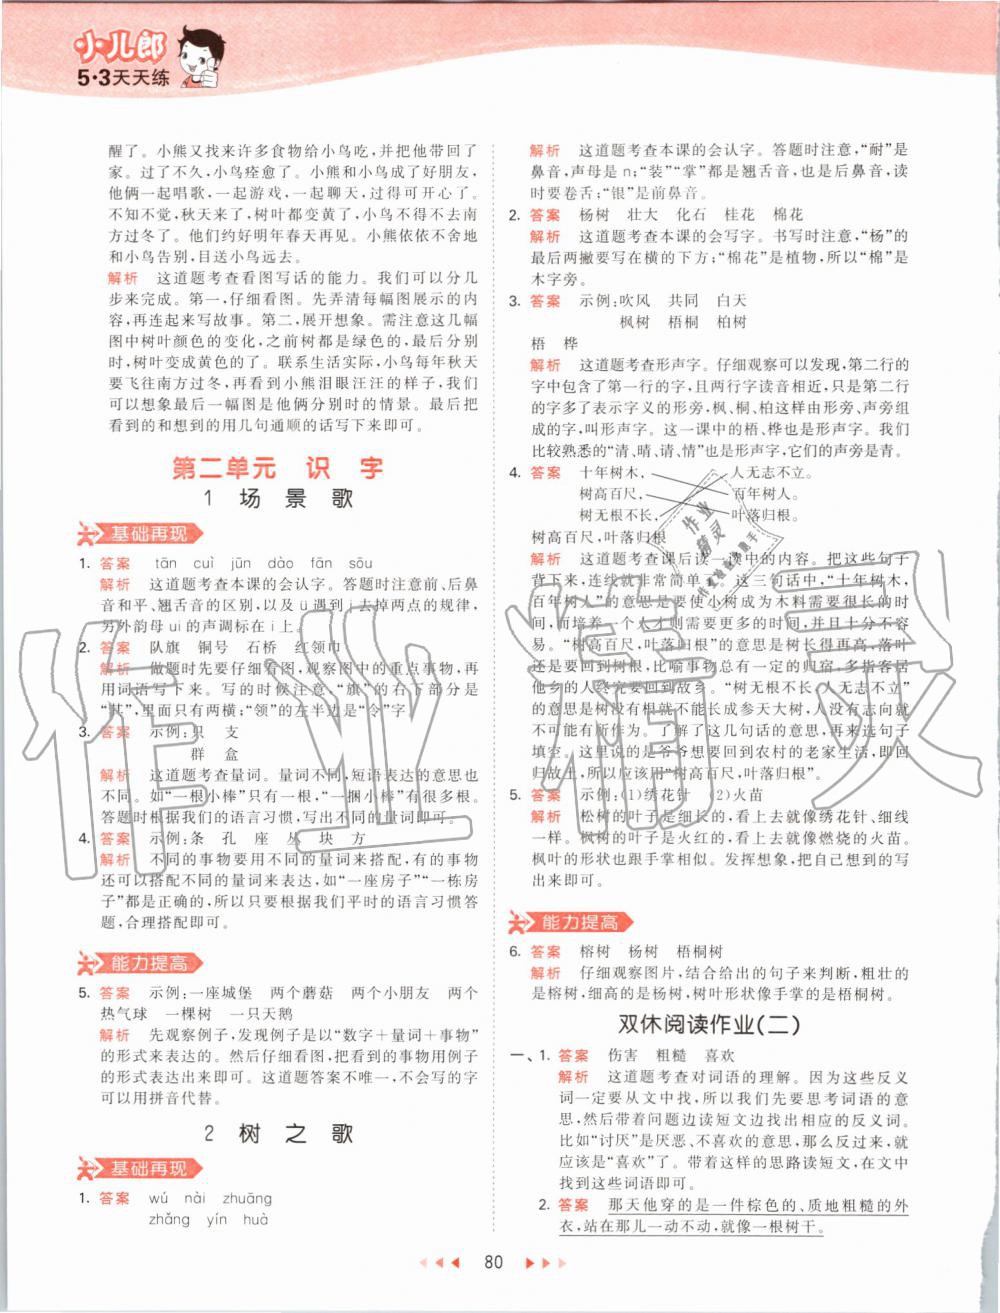 小儿郎
5·3天天练
醒了。小熊又找来许多食物给小鸟吃,并把他带回了家。
过了不久,小鸟痊愈了。小熊和小鸟成了好朋友,
他俩一起唱歌,一起游戏,一起聊天,过得可开心了。
不知不觉,秋天来了,树叶都变黄了,小鸟不得不去南
方过冬了。他们约好明年春天再见。小熊依依不舍地
和小鸟告别,目送小鸟飞向远方。
解析 这道题考查看图写话的能力。我们可以分几
步来完成。第一,仔细看图。先弄清每幅图展示的内
容,再连起来写故事。第二,展开想象。需注意这几幅
图中树叶颜色的变化,之前的树都是绿色的,最后分别
时,树叶变成黄色的了。联系生活实际,小鸟每年秋天
要飞往南方过冬,再看到小熊泪眼汪汪的样子,我们
可以想象最后一幅图是他俩分别时的情景。最后,把
看到的和想到的用几句通顺的话写下来即可。
第二单元 识字
1 场景歌
基础再现
1. 答案 tān cuì jūn dào fān sōu
解析 这道题考查本课的会认字。答题时注意前、后鼻
音和平、翘舌音的区别,以及ü遇到j去掉两点的规律,
另外韵母ui的声调标在i上。
2. 答案 队旗 铜号 石桥 红领巾
解析 做题时先要仔细看图,观察图中的重点事物,再
用词语写下来。写的时候注意,“旗”的右下部分是
“其”,里面只有两横;“领”的左半边是“令”字。
3. 答案 示例:只 支
群 盒
解析 这道题考查量词。量词不同,短语表达的意思也
不同。如“一根小棒”只有一根,“一捆小棒”有很多根。
答题时根据我们的语言习惯,写出不同的量词即可。
4. 答案 示例:条 孔 座 丛 块 方
解析 不同的事物要用不同的量词来搭配,有的事物
还可以搭配不同的量词来表达,如“一座房子”“一栋房
子”都是正确的,所以只要根据我们平时的语言习惯答
题,合理搭配即可。
能力提高
5. 答案 示例:一座城堡 两个蘑菇 两个小朋友 两个
热气球 一棵树 一只天鹅
解析 先观察例子,发现例子是以“数字+量词+事物”
的形式来表达的。然后仔细看图,把看到的事物用例子
的形式表达出来即可。这道题答案不唯一,不会写的字可
以用拼音代替。
2 树之歌
基础再现
1. 答案 wú nài zhuāng
zhǎng yín huà
解析 这道题考查本课的会认字。答题时注意,“耐”是
鼻音,声母是n;“装”“掌”都是翘舌音,也是后鼻音,读
时要卷舌;“银”是前鼻音。
2. 答案 杨树 壮大 化石 桂花 棉花
解析 这道题考查本课的会写字。书写时注意,“杨”的
的最后两撇要写在横的下方;“棉花”是植物,所以“棉”是
木字旁。
3. 答案 示例:吹风 共同 白天
枫树 梧桐 柏树
梧 桦
解析 这道题考查形声字。仔细观察可以发现,第二行的
字中包含了第一行的字,且两行字读音相近,只是第二行
的字多了表示字义的形旁,枫、桐、柏这样由形旁、声旁组
成的字,叫形声字。这一课中的梧、桦也是形声字。我们
比较熟悉的“清、晴、请、情”也是形声字,它们的声旁是青。
4. 答案 十年树木, 人无志不立。
树高百尺, 百年树人。
树无根不长, 叶落归根。
树高百尺,叶落归根
解析 这道题考查课后读一读中的内容。把这些句子
背下来,连线就非常简单了。这三句话中,“十年树木,
百年树人”的意思是要使小树成为木料需要很长的时
间,而培养一个人才则需要更多的时间,并且十分不容
易。“树高百尺,叶落归根”的意思是树长得再高,落叶
还是要回到树根。比喻事物总有一定的归宿,多指客居
他乡的人终究要回到故乡。“树无根不长,人无志不立”
的意思是树没有根就不能长成参天大树,人没有志向就
不可能有所作为。了解了这几句话的意思,再选句子
填空。这里说的是爷爷想要回到农村的老家生活,即回
回归故土,所以应该用“树高百尺,叶落归根”。
5. 答案 示例:(1)绣花针 (2)火苗
解析 松树的叶子是细长的,看上去就像绣花针、细线
一样。枫树的叶子是火红的,看上去就像燃烧的火苗。
枫叶的形状也跟手掌相似。发挥想象,把自己想到的写
出来即可。
能力提高
6. 答案 榕树 杨树 梧桐树
解析 仔细观察图片,结合给出的句子来判断,粗壮的
是榕树,细高的是杨树,树叶形状像手掌的是梧桐树。
双休阅读作业(二)
一、1. 答案 伤害 粗糙 喜欢
解析 这道题考查对词语的理解。因为这些反义
词一定要从文中找,所以我们先要思考词语的意
思,然后带着问题边读短文边找出相应的反义词。
比如“讨厌”是厌恶、不喜欢的意思,那么反过来,就
应该是“喜欢”了。带着这样的思路读短文,在文中
找到这些词语即可。
2. 答案 那天他穿的是一件棕色的、质地粗糙的外
衣,站在那儿一动不动,就像一根树干。
80
作业精灵
作业精灵